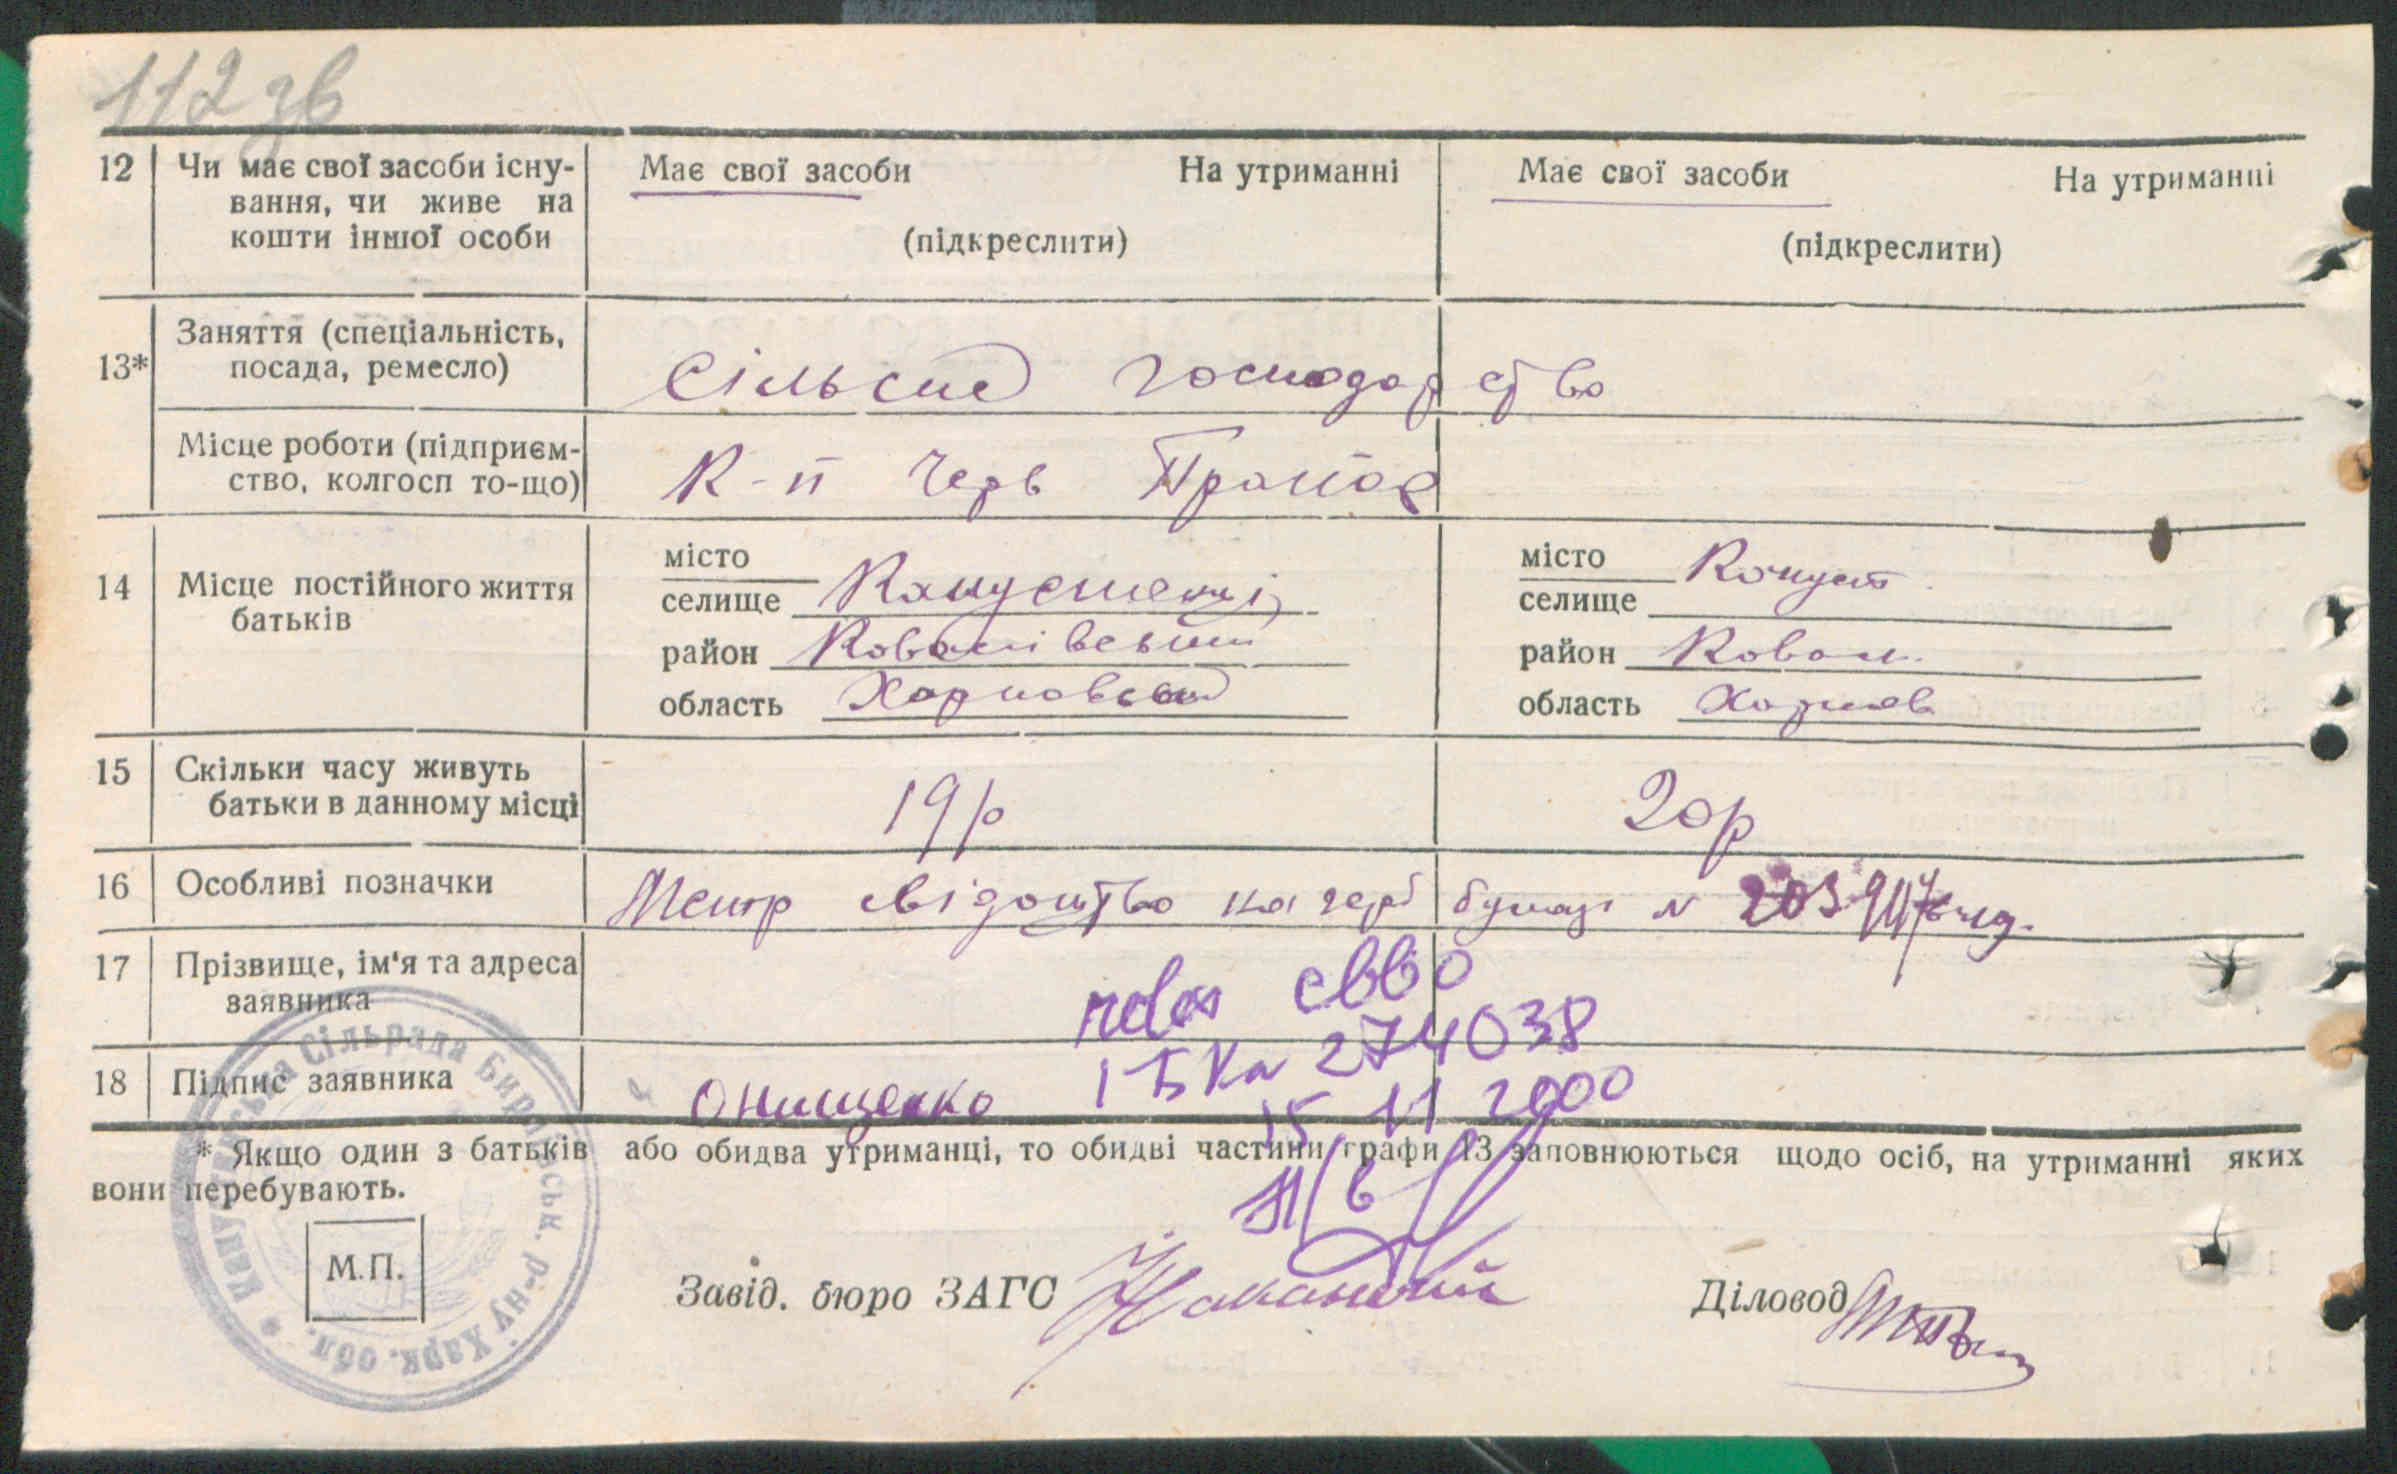 112 зв
12 Чи має свої засоби існу- Має свої засоби На утриманні Має свої засоби На утриманні
вання, чи живе на
кошти іншої особи (підкреслити) (підкреслити)
Заняття (спеціальність,
13* посада, ремесло) Сільське господарство
Місце роботи (підприєм-
ство, колгосп то-що) К-п Черв Прапор
місто місто
14 Місце постійного життя селище селище
батьків
район район Ковал.
область область Харків
15 Скільки часу живуть
батьки в данному місці 19р 20р
16 Особливі позначки Метр свідоцтво на герб бумазі N
17 Прізвище, ім'я та адреса
заявника
свво
18 Підпис заявника Онищенко
274038
15 11 2000
* Якщо один з батьків або обидва утриманці, то обидві частини графи 13 заповнюються щодо осіб, на утриманні яких
вони перебувають.
М.П. Завід. бюро ЗАГС Діловод
Сільрада р-ну Харк. обл.